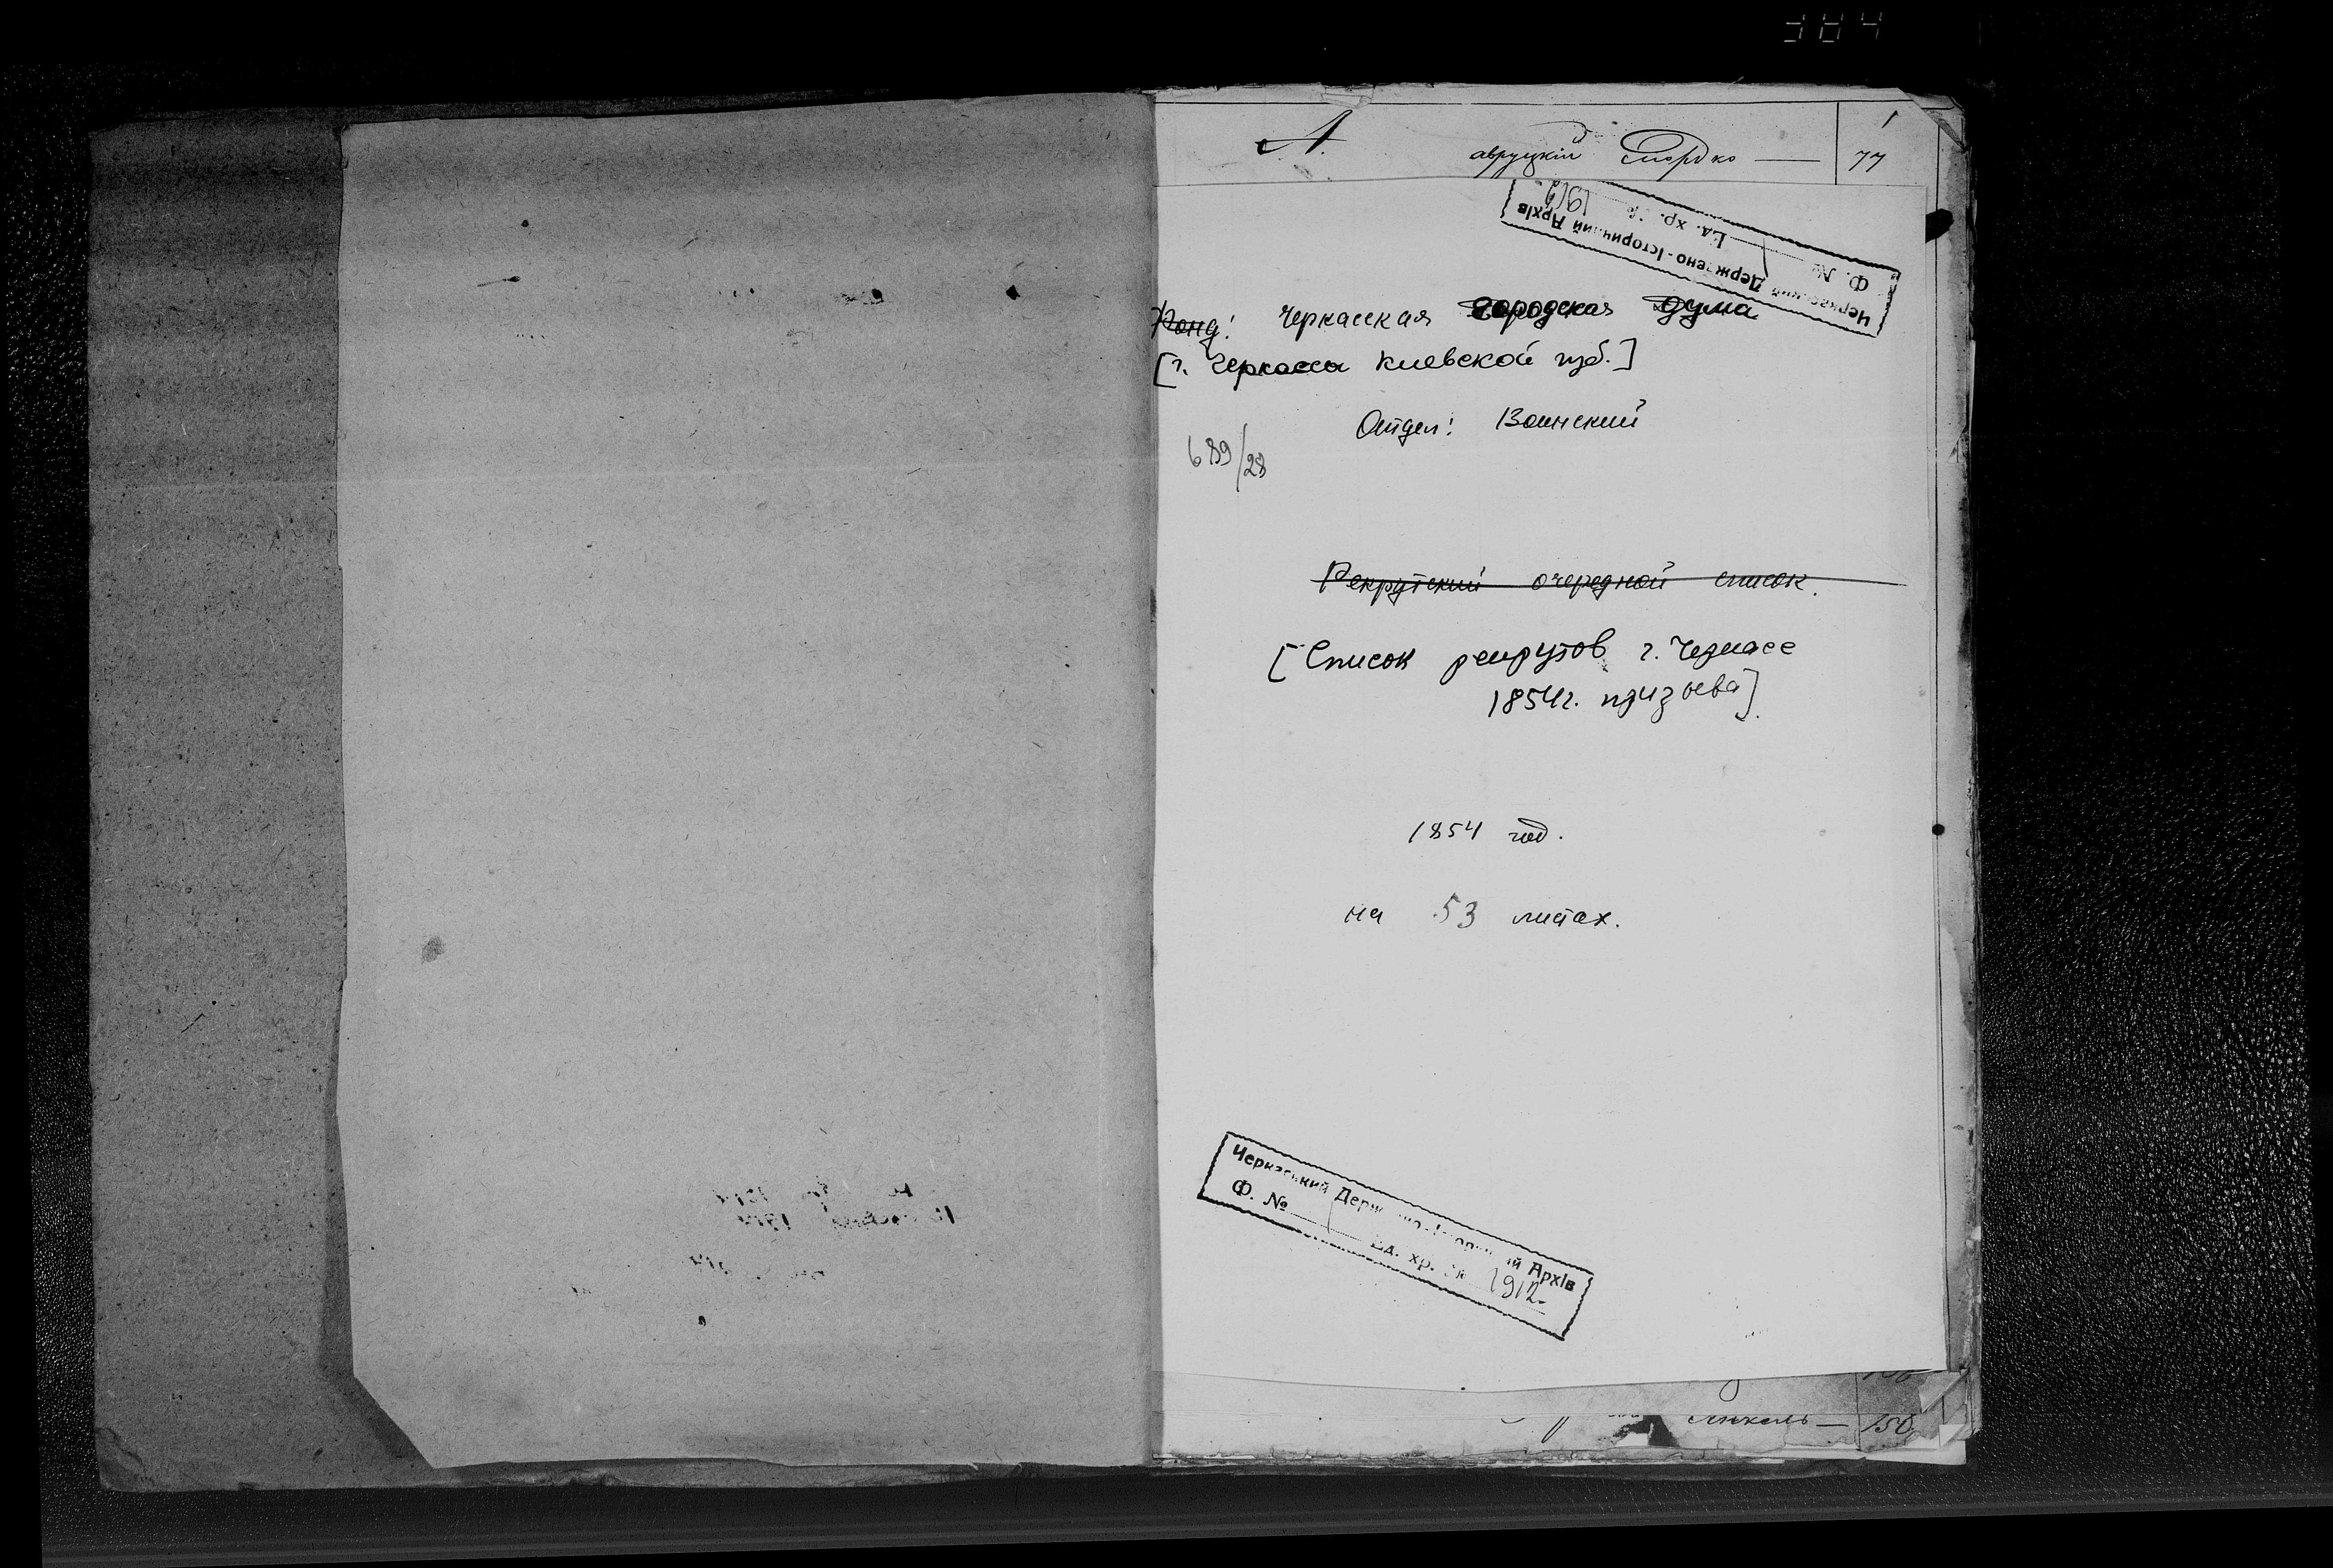 384
1
А.
авруцкій Мордко — 77
Черкаський Державно-Історичний Архів
Ф. № Ед. хр. № 1912
Фонд: Черкасская городская дума
[г. Черкассы Киевской губ.]
Отдел: Воинский
689/28
Рекрутский очередной список.
[Список рекрутов г. Черкасс
1854г. призыва].
1854 год.
на 53 листах.
Черкаський Державно-Історичний Архів
Ф. № Ед. хр. № 1912
Янкель — 150